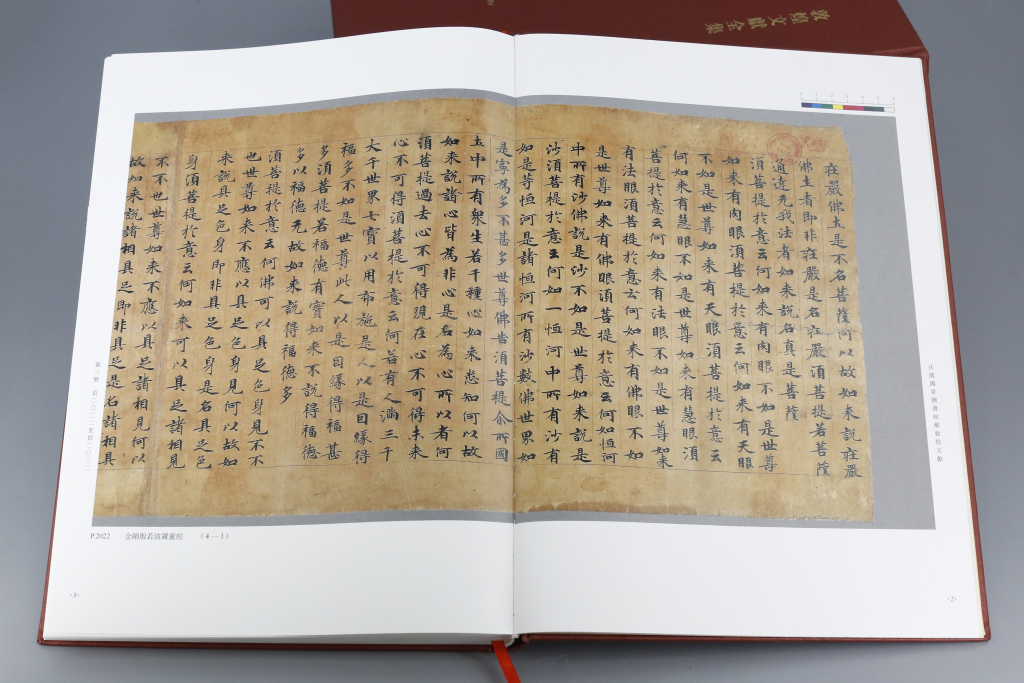 敦煌文獻全集
莊嚴佛土是不名菩薩何以故如来說莊嚴
佛土者即非莊嚴是名莊嚴須菩提若菩薩
通達无我法者如来說名真是菩薩
須菩提於意云何如来有肉眼不如是世尊
如来有肉眼須菩提於意云何如来有天眼
不如是世尊如来有天眼須菩提於意云
何如来有慧眼不如是世尊如来有慧眼須
菩提於意云何如来有法眼不如是世尊如来
有法眼須菩提於意云何如来有佛眼不如
是世尊如来有佛眼須菩提於意云何如恒河
中所有沙佛說是沙不如是世尊如来說是
沙須菩提於意云何如一恒河中所有沙有
如是等恒河是諸恒河所有沙數佛世界如
是寧為多不甚多世尊佛告須菩提尒所國
土中所有衆生若干種心如来悉知何以故
如来說諸心皆為非心是名為心所以者何
須菩提過去心不可得現在心不可得未来
心不可得須菩提於意云何若有人滿三千
大千世界七寶以用布施是人以是因緣得
福多不如是世尊此人以是因緣得福甚
多須菩提若福德有實如来不說得福德
多以福德无故如来說得福德多
須菩提於意云何佛可以具足色身見不不
也世尊如来不應以具足色身見何以故如
来說具足色身即非具足色身是名具足色
身須菩提於意云何如来可以具足諸相見
不不也世尊如来不應以具足諸相見何以
故如来說諸相具足即非具足是名諸相具
法國國家圖書館藏敦煌文獻
·2·
P.2022 金剛般若波羅蜜經 （4—1）
·3·